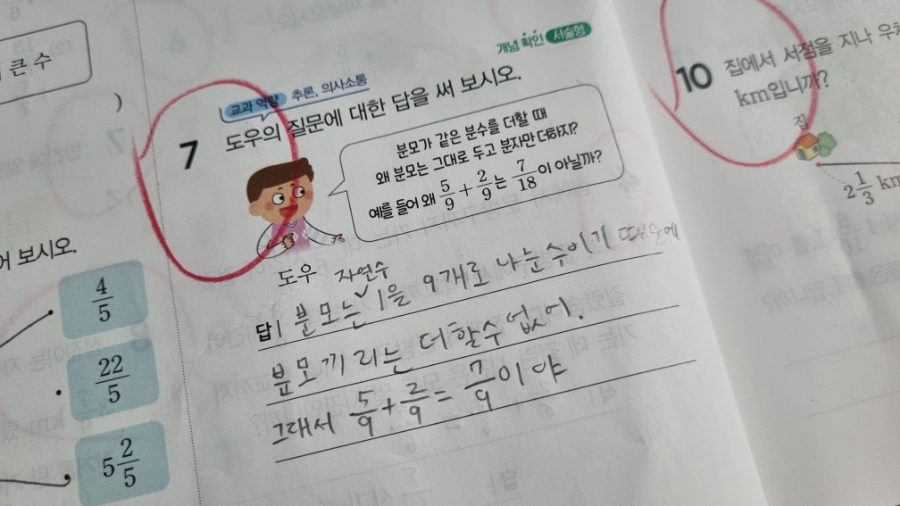 큰 수
)
어 보시오.
4/5
22/5
5 2/5
개념 확인 서술형
교과 역량 추론, 의사소통
7 도우의 질문에 대한 답을 써 보시오.
분모가 같은 분수를 더할 때
왜 분모는 그대로 두고 분자만 더하지?
예를 들어 왜 5/9 + 2/9 는 7/18 이 아닐까?
도우 자연수
답 | 분모는 ✓ 1을 9개로 나눈 수이기 때문에
분모끼리는 더할수 없어.
그래서 5/9 + 2/9 = 7/9 이야
10 집에서 서점을 지나 우체
km입니까?
집
2 1/3 km